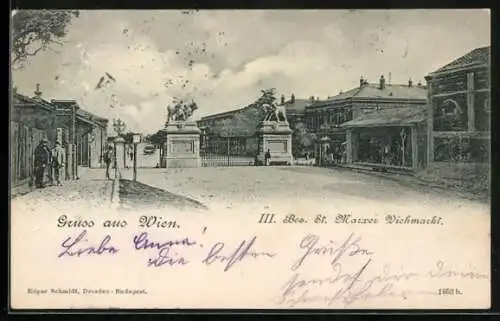 Gruss aus Wien.
III. Bes. St. Marxer Viehmarkt.
Liebe Anna!
die besten Grüße
sendet dir dein
Edgar Schmidt, Dresden-Budapest.